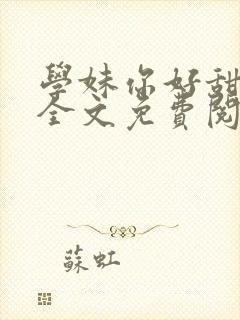 學妹你好甜
全文免費閱
蘇虹